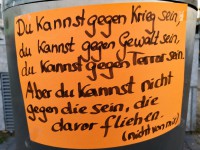 Du kannst gegen Krieg sein,
du kannst gegen Gewalt sein,
du kannst gegen Terror sein.
Aber du kannst nicht
gegen die sein, die
davor fliehen.
(nicht von mir)